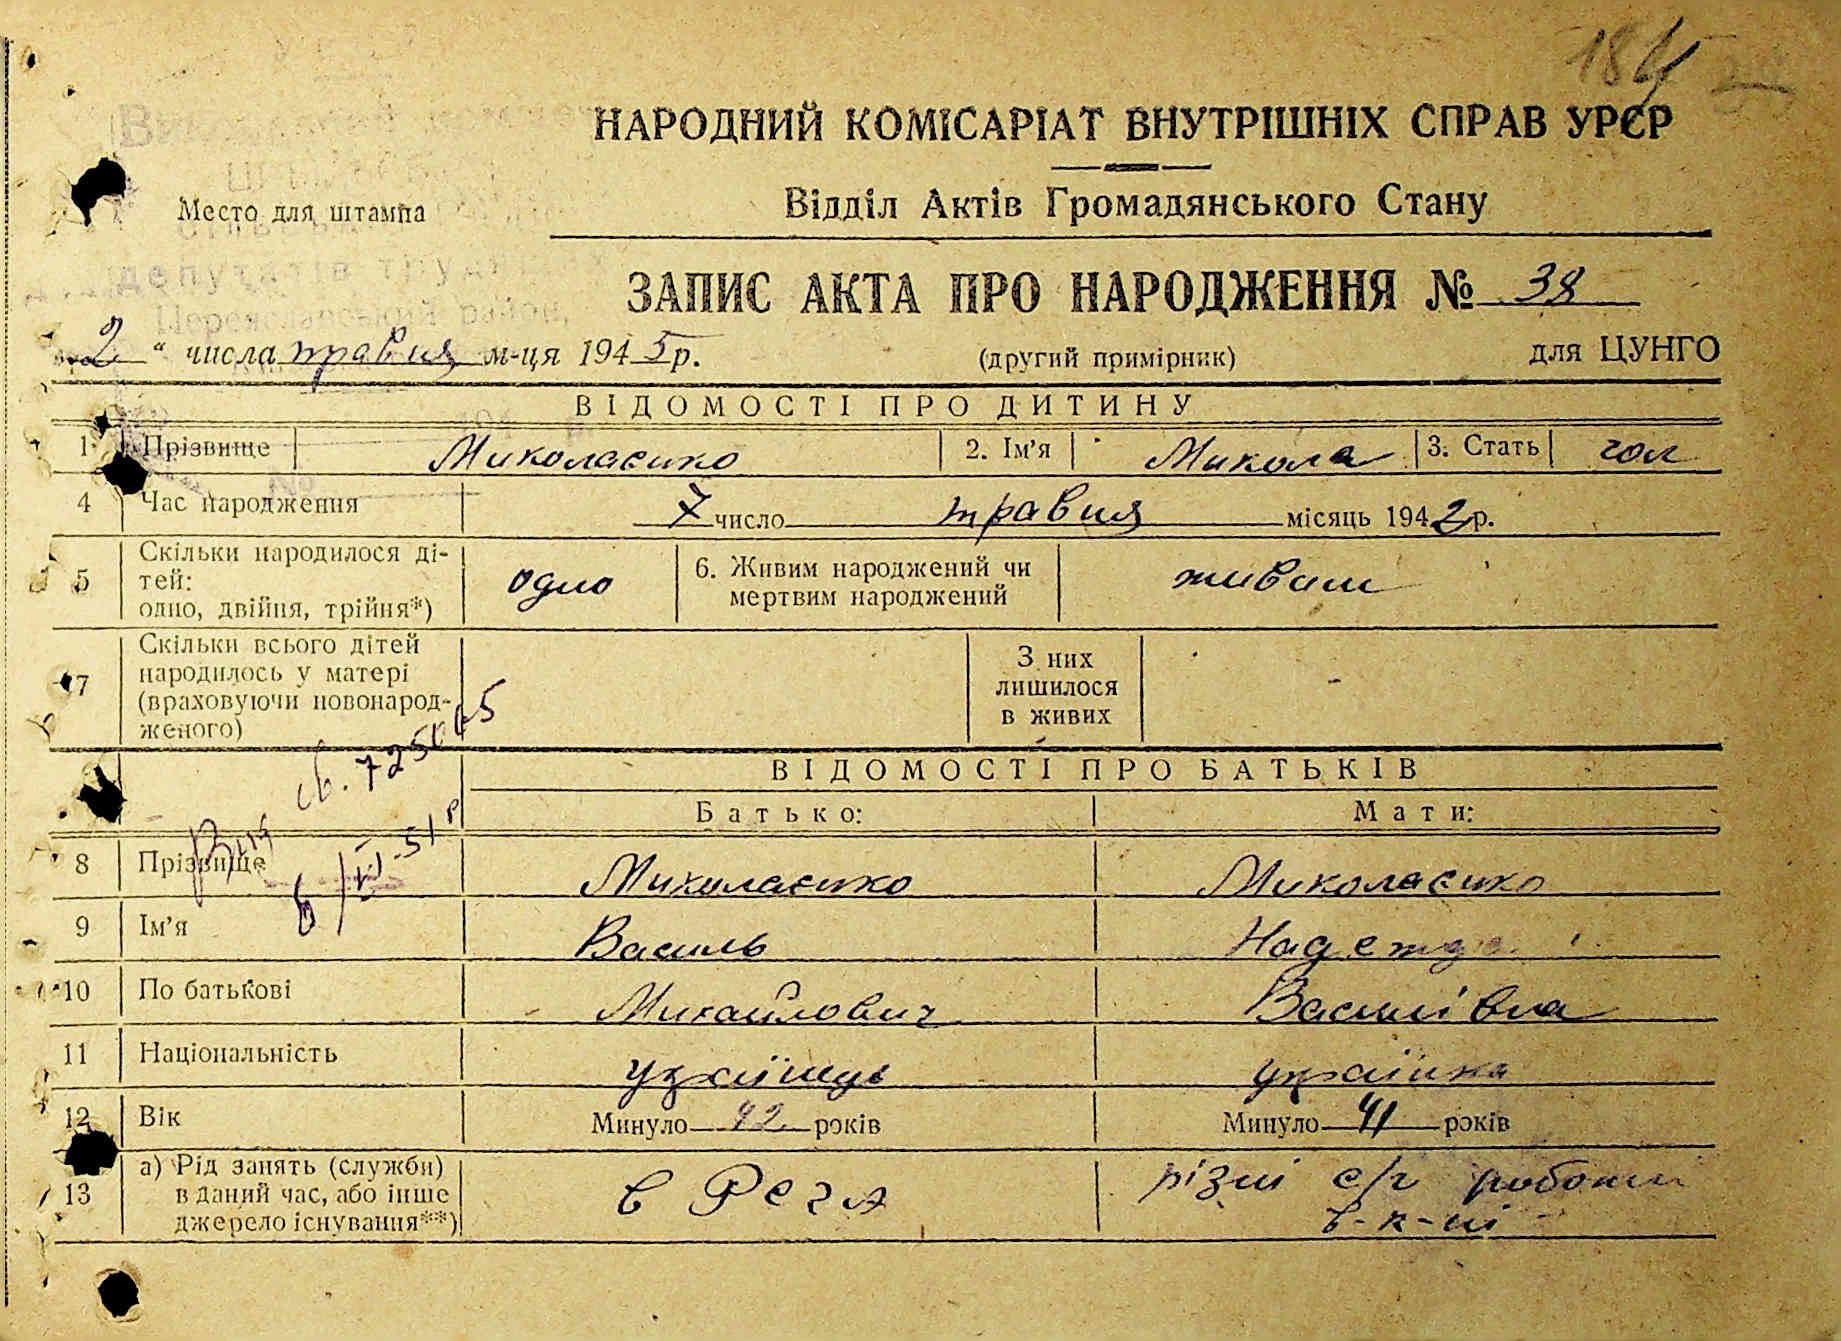 184
НАРОДНИЙ КОМІСАРІАТ ВНУТРІШНІХ СПРАВ УРСР
Место для штампа
Відділ Актів Громадянського Стану
депутатів
Переяславський район,
ЗАПИС АКТА ПРО НАРОДЖЕННЯ № 38
„2“ числа травня м-ця 1945 р. (другий примірник) для ЦУНГО
ВІДОМОСТІ ПРО ДИТИНУ
1 Прізвище Миколаєнко 2. Ім'я Микола 3. Стать чол
4 Час народження 7 число травня місяць 1942 р.
5 Скільки народилося ді-
тей:
одно, двійня, трійня*) одно 6. Живим народжений чи
мертвим народжений живим
7 Скільки всього дітей
народилось у матері
(враховуючи новонарод-
женого) З них
лишилося
в живих -
ВІДОМОСТІ ПРО БАТЬКІВ
Батько: Мати:
8 Прізвище Миколаєнко Миколаєнко
9 Ім'я Василь Надежда
10 По батькові Михайлович Василівна
11 Національність українець українка
12 Вік Минуло 42 років Минуло 41 років
13 а) Рід занять (служби)
в даний час, або інше
джерело існування**) в РСЧА різні с/г роботи
в-к-ні